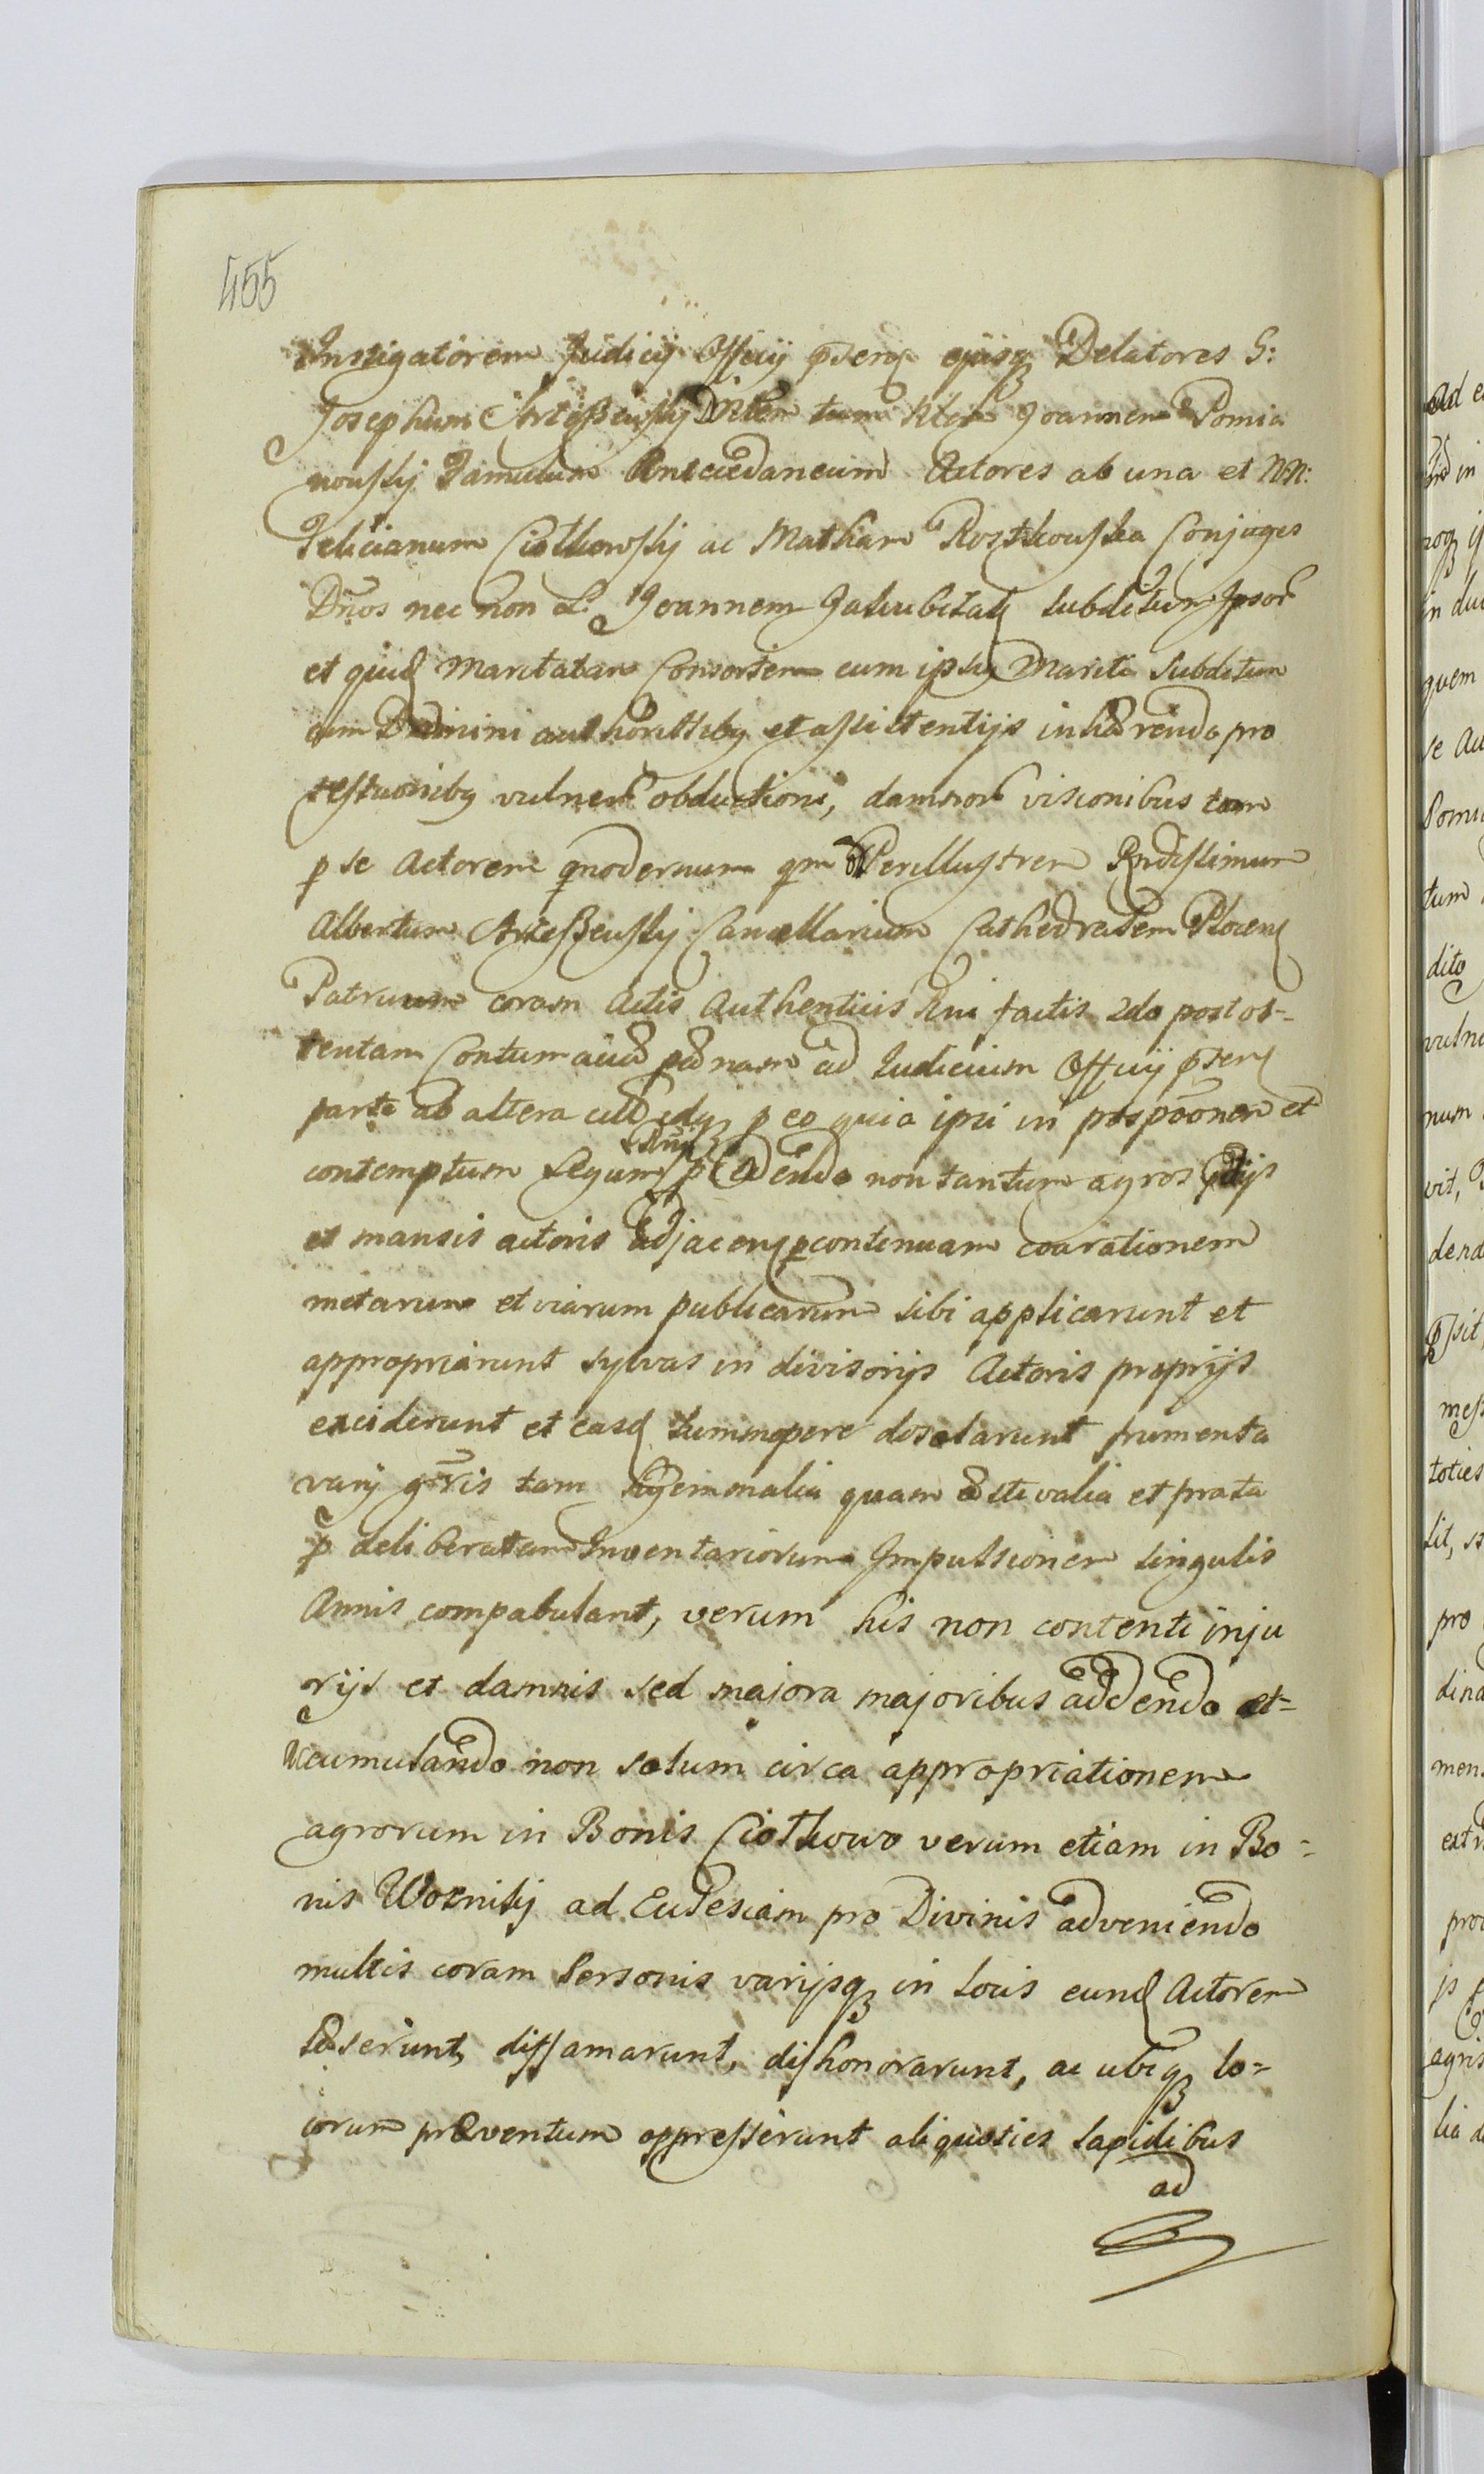 455
Instigatorem Judicij Officij p̄seng ejusq Delatores G:
Josephum Arcißewskij tum Joannem Pomia
nowskij Famulum Antecedaneum Actores ab una et NN:
Felicianum Ciołkowskij ac Mathian Rostkowska Conjuges
Dn̄os nec non L. Joannem subditum Ipsor
et quid maritatam Consortem cum ipsig Mariti subditum
cum authorittibg et assistentijs inhærendo pro
testuonibg vulner obductioni, damnor visionibus tam
p se Actorem modernum qm Perillustrem Rndissimum
Albertum Arcißewskij Cancellarium Cathedralem Plocens
Patruum coram Actis Authenticis Rni factis 2do post ob-
tentam Contumaciæ pænam ad Judicium Officij p̄sens
parte ab altera idq p eo quia ipsi in prospōonem et
contemptum Legum Rni p̄ edendo non tantum agros
et mansis actoris adjacens p continuam coarationem
metarum et viarum publicarum sibi applicarunt et
appropriarunt sylvas in divisorijs Actoris proprijs
exciderunt et easd summopere desolarunt frumenta
varij gn̄ris tam hyemmalia quam æstivalia et prata
p deliberatam Inventariorum Impulsionem singulis
Annis compabulant, verum his non contenti inju
rijs et damnis sed majora majoribus addendo et-
accumulando non solum circa appropriationem
agrorum in Bonis Ciołkowo verum etiam in Bo-
nis Woznikij ad Ecclesiam pro Divinis adveniendo
multis coram Personis varijsq in Locis eund Actorem
læserunt, diffamarunt, dishonorarunt, ac ubiq lo-
corum præventum oppresserunt aliquoties lapidibus
ad